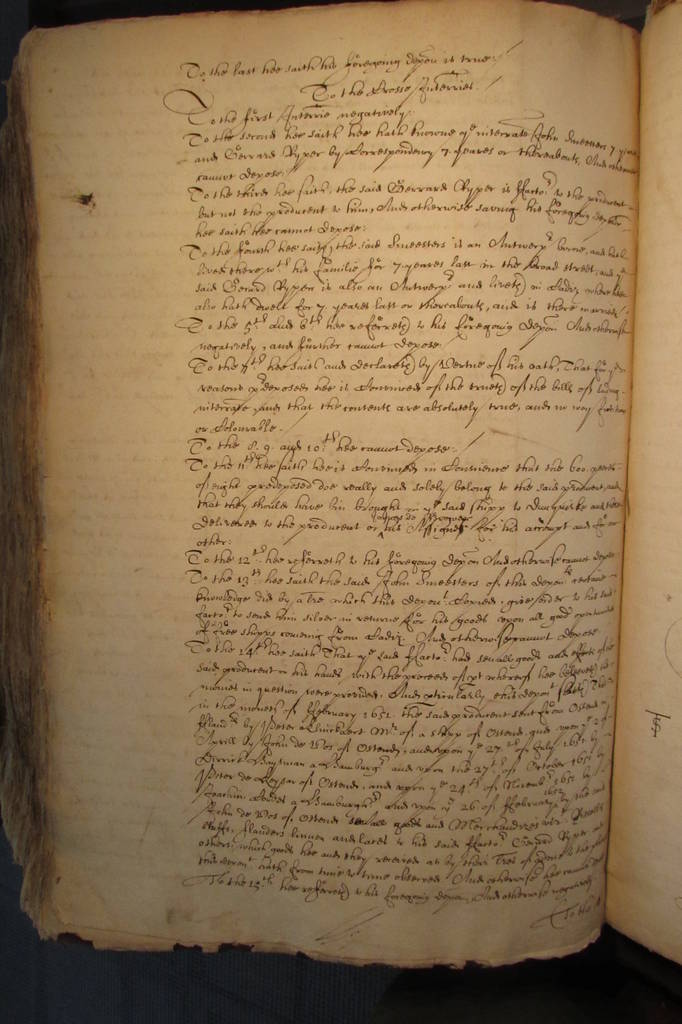 To the last hee saith his foregoing depon is true./
To the Crosse Interries.
To the first Interrie negatively./
To the second hee saith hee hath knowne ye interrate John Smeesters 7 yeares
and Gerrard Ryper by Correspondency 7. yeares or thereabouts, And otherwise
cannot depose./
To the third hee saith, the said Gerrard Ryper is ffactor to the producent
but not the producent to him, And otherwise saving his foregoing depon
hee saith hee cannot depose:
To the fourth hee saith, the said Smeesters is an Antwerpr borne, and hath
lived there wth his familie for 7. yeares last in the broad street, and ye
said Gerard Rypen is also an Antwerpr and liveth in Cadiz where hee
also hath dwelt for 7. yeares last or thereabouts, and is there married./
To the 5th And 6th hee referreth to his foregoing depon And otherwise
negatively, and further cannot depose.
To the 7th hee saith and declareth by Vertue of his oath, That for ye
reasons predeposed hee is Convinced of the trueth of the bills of lading
interrate, and that the contents are absolutely true, and no way fictitious
or Colourable.
To the 8. 9. and 10th hee cannot depose./
To the 11th hee saith hee is Convinced in Conscience that the 600. peeces
of eight predeposed doe really and solely belong to the said producent, and
that they should have bin brought in ye said shipp to Dunquirke and there
delivered to the producent or his Assignes for his accompt and for no
other:
To the 12th hee referreth to his foregoing depon And otherwise cannot depose
To the 13th hee saith the said John Smeesters of this deponts certaine
knowledge did by a lre, which this depont Copied, give order to his said
factor to send him silver in returne for his goods upon all good opertunities
of free shipps coming from Cadiz. And otherwise cannot depose
To the 14th hee saith That ye said ffactor had severall goods and effects of the
said producent in his hands, with the proceeds of pt whereof hee beleeveth the
monies in question were provided. And pticularly this depont saith That
in the moneth of ffebruary 1651. the said producent sent from Ostend in
ffland by Peter Clinckaert Mr of a shipp of Ostend, and upon ye 2 of
Aprill by John de Vos of Ostend, and upon ye 27th of July 1651 by
Derrick Baytman a Hamburgr and upon the 27th of October 1651 by
Peter de Keysar of Ostend, and upon ye 24th of Novembr 1651 by
Joachim a Hamburghr And upon ye 26 of ffebruary 1652 by the said
John de Vos of Ostend severall goods and Merchandizes
stuffs, fflanders linnen and laces to his said ffactor Gerard Ryper and
others, which goods hee and they received as by their lres
this deponent hath from time to time observed. And otherwise hee cannot depose
To the 15th hee referreth to his foregoing depon, And otherwise negatively
To the